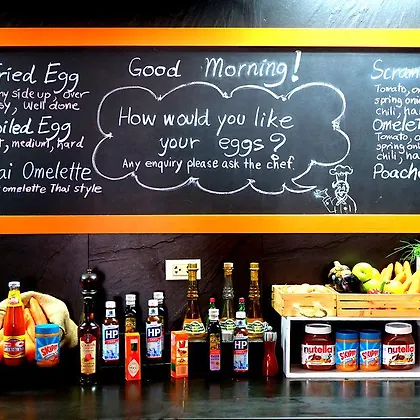 Fried Egg
ny side up, over
sy, Well done
oiled Egg
t, medium, hard
ai Omelette
omelette Thai style
Good Morning!
How would you like
your eggs?
Any enquiry please ask the chef.
Scram
Tomato, on
spring onio
chili, ha
Omelet
Tomato, o
spring onio
chili, ha
Poache
HP
HP
HP
SKIPPY
nutella
SKIPPY
SKIPPY
nutella